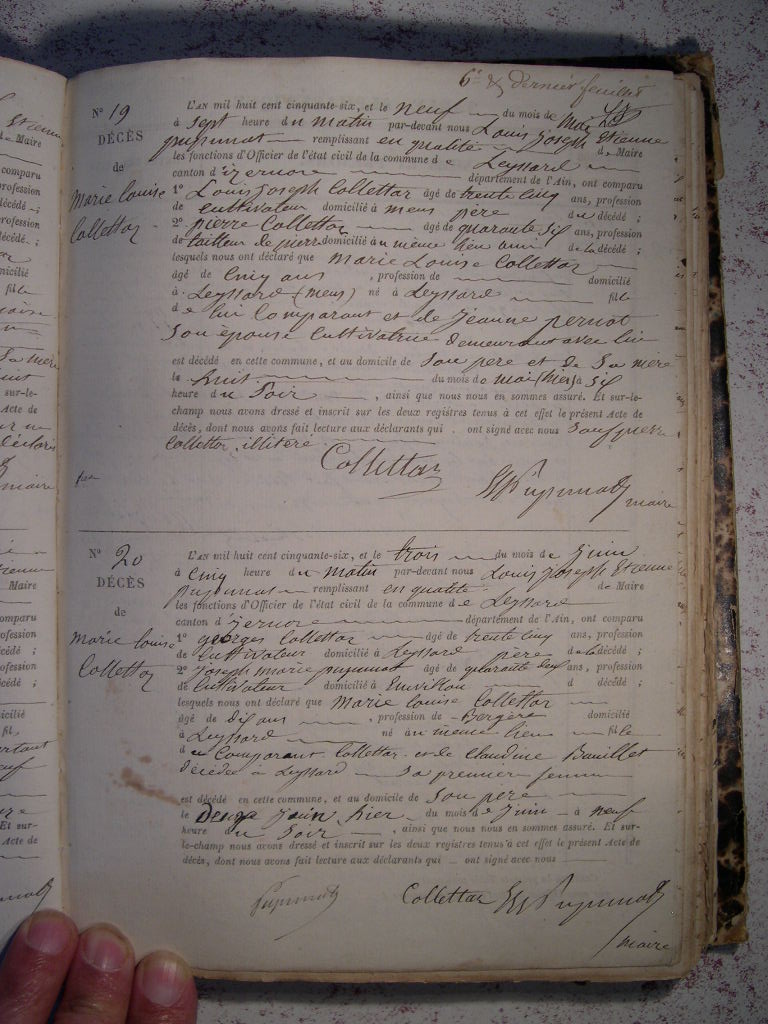 6e & dernier feuillet
N° 19
DÉCÈS
de
Marie Louise
Collettaz
L'AN mil huit cent cinquante-six, et le neuf du mois de Mai
à sept heure du matin par-devant nous Louis Joseph Etienne
pupunat remplissant en qualité de Maire
les fonctions d'Officier de l'état civil de la commune de Leyssard
canton d'izernore département de l'Ain, ont comparu
1° Louis Joseph Collettaz âgé de trente cinq ans, profession
de cultivateur domicilié à mens père du décédé ;
2° pierre Collettaz âgé de quarante six ans, profession
de tailleur de pierre domicilié au même lieu ami de la décédé ;
lesquels nous ont déclaré que Marie Louise Collettaz
âgé de Cinq ans , profession de domicilié
à Leyssard (mens) né à Leyssard fille
de lui Comparant et de Jeanne pernot
Son épouse Cultivatrice demeurant avec lui
est décédé en cette commune, et au domicile de Son père et de Sa mère
le huit du mois de mai (hier) à six
heure du Soir , ainsi que nous nous en sommes assuré. Et sur-le-
champ nous avons dressé et inscrit sur les deux registres tenus à cet effet le présent Acte de
décès, dont nous avons fait lecture aux déclarants qui ont signé avec nous Sauf pierre
Collettaz illitéré
Collettaz
Pupunat
maire
N° 20
DÉCÈS
de
Marie Louise
Collettaz
L'AN mil huit cent cinquante-six, et le trois du mois de Juin
à Cinq heure du matin par-devant nous Louis Joseph Etienne
pupunat remplissant en qualité de Maire
les fonctions d'Officier de l'état civil de la commune de Leyssard
canton d'izernore département de l'Ain, ont comparu
1° georges Collettaz âgé de trente cinq ans, profession
de Cultivateur domicilié à Leyssard père de la décédé ;
2° Joseph Marie pupunat âgé de quarante deux ans, profession
de Cultivateur domicilié à d décédé ;
lesquels nous ont déclaré que Marie Louise Collettaz
âgé de Dix ans , profession de Bergère domicilié
à Leyssard né au même lieu fille
du Comparant Collettaz et de Claudine Bouillet
Décédée à Leyssard Sa première femme
est décédé en cette commune, et au domicile de Son père
le Deux Juin hier du mois de Juin à neuf
heure du Soir , ainsi que nous nous en sommes assuré. Et sur-
le-champ nous avons dressé et inscrit sur les deux registres tenus à cet effet le présent Acte de
décès, dont nous avons fait lecture aux déclarants qui ont signé avec nous
Pupunat Collettaz Pupunat
maire